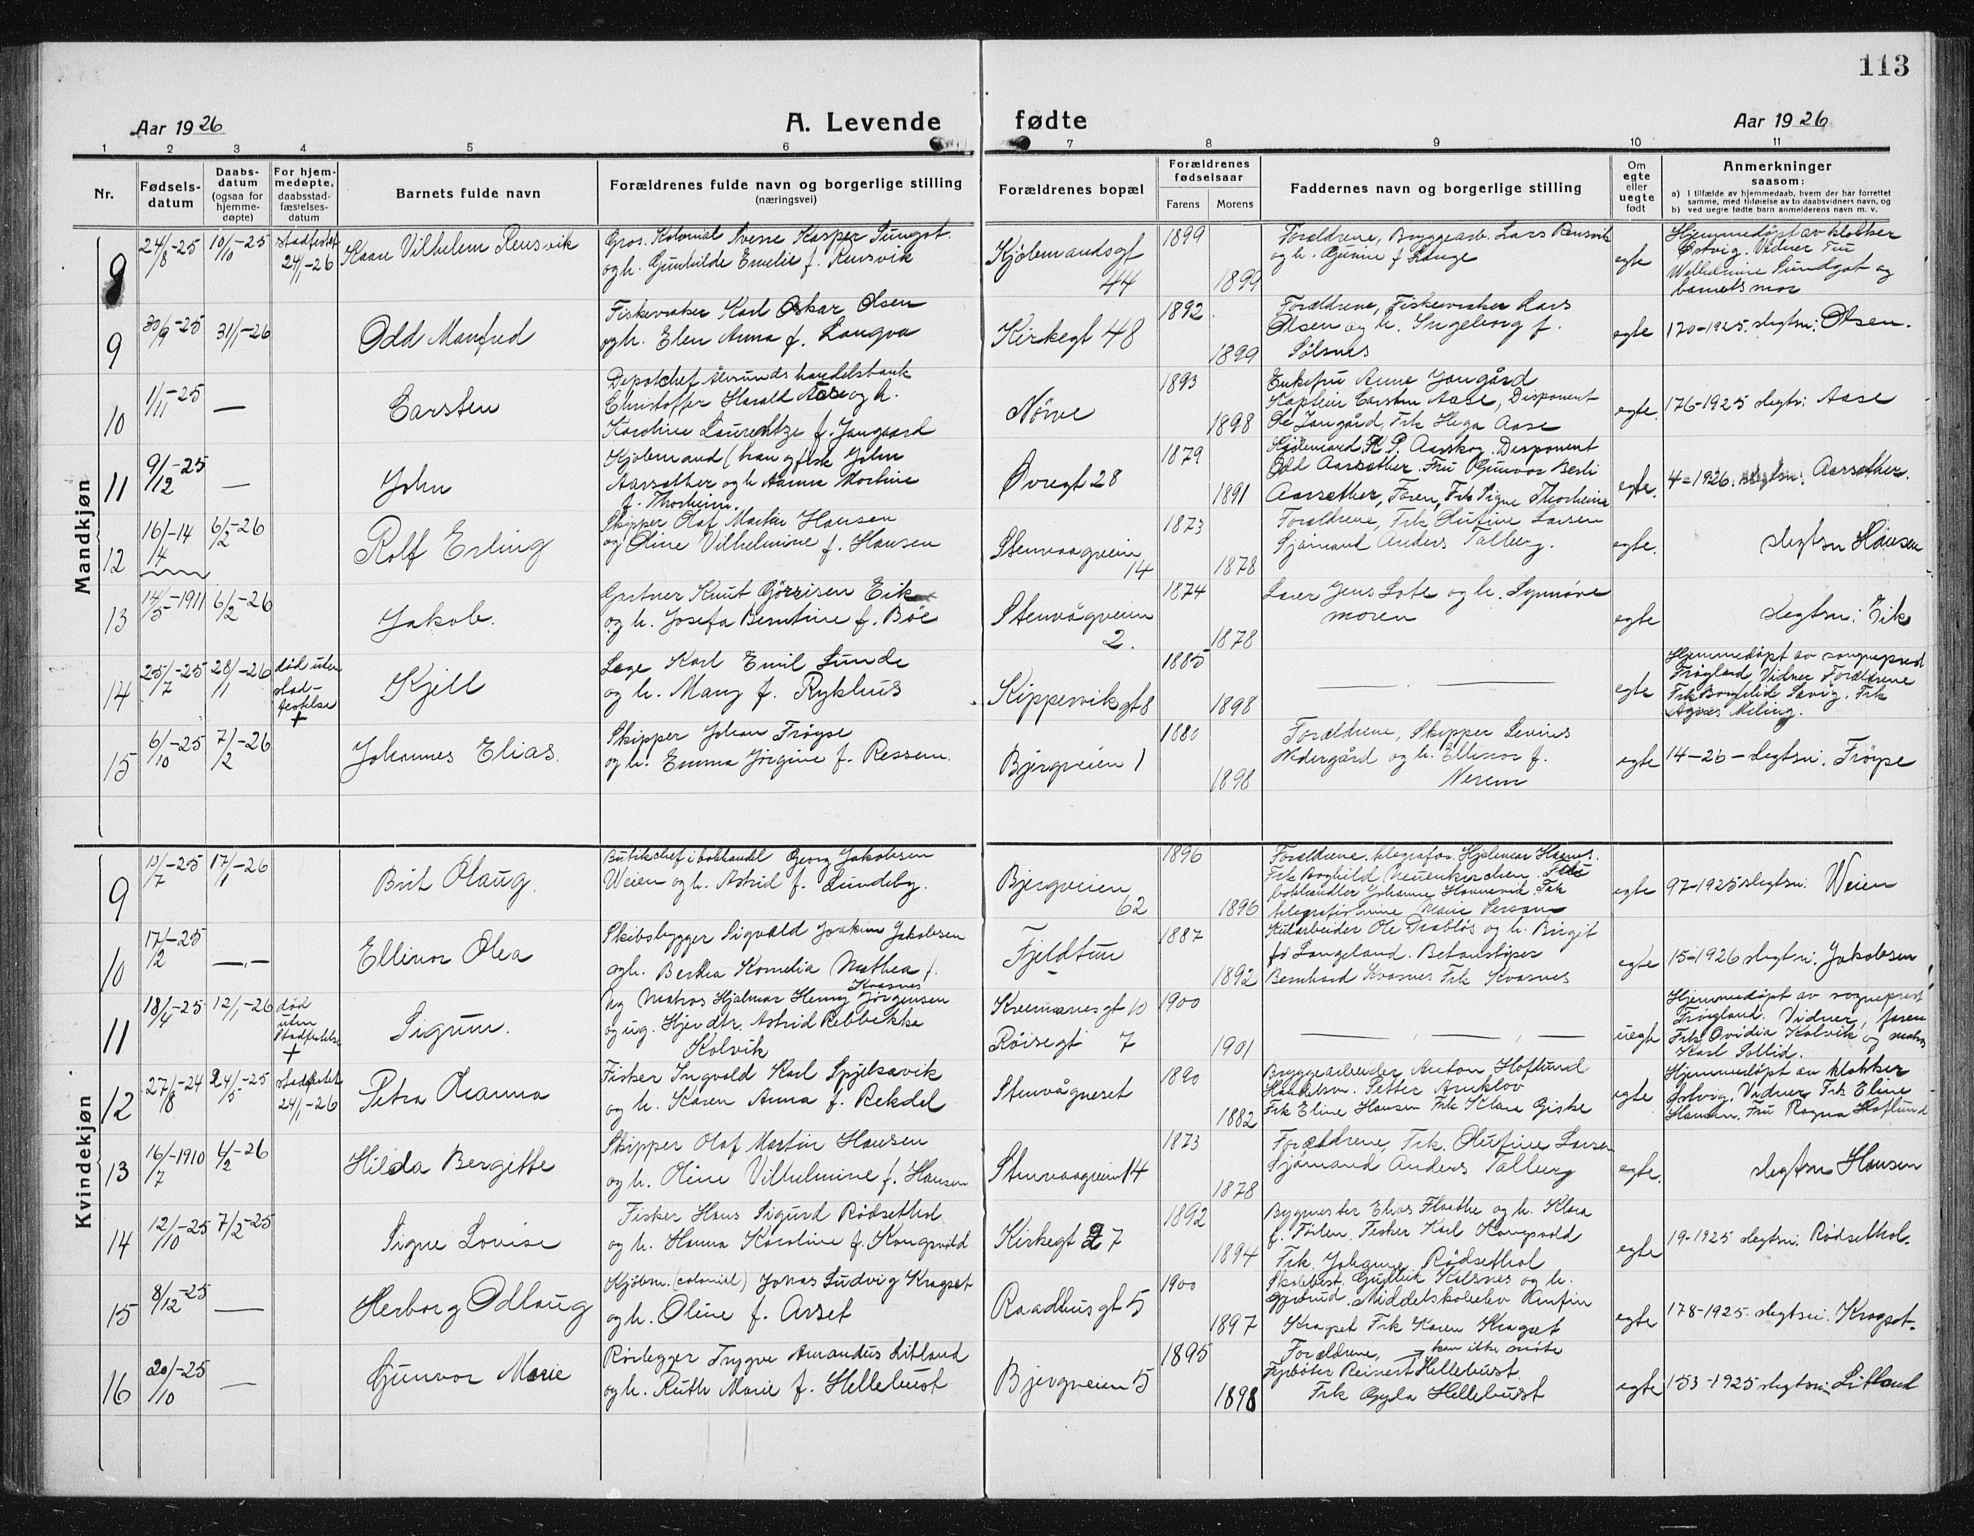 113
Aar 1926
A. Levende fødte
Aar 1926
1 2 3 4 5 6 7 8 9 10 11
Nr.
Fødsels-
datum
Daabs-
datum
(ogsaa for
hjemme-
døpte)
For hjem-
medøpte,
daabsstad-
fæstelses-
datum
Barnets fulde navn
Forældrenes fulde navn og borgerlige stilling
(næringsvei)
Forældrenes bopæl
Forældrenes
fødselsaar
Farens Morens
Faddernes navn og borgerlige stilling
Om
egte
eller
uegte
født
Anmerkninger
saasom:
a) I tilfælde av hjemmedaab, hvem der har forrettet
samme, med tilføielse av to daabsvidners navn, og
b) ved uegte fødte barn anmelderens navn m. v.
Mandkjøn
8
24/8-25
10/10-25
stadfestet
24/1-26
Kaare Vilhelm Rensvik
Gros. Kolonial Sverre Kasper Sundgot
og h. Gunhilde Emelie f. Rensvik
Kjølemandsgt
44
1899
1899
Forældrene, Bryggearb. Lars Rensvik
og h. Gunne f Lange
egte
Hjemmedøpt av klokker
Østvig. Vidner Fru
Wilhelmine Sundgot og
barnets mor
9
30/9-25
31/1-26
Odd Manfred
Fiskevraker Karl Oskar Olsen
og h. Elen Anna f. Langva
Kirkegt 48
1892
1899
Forældrene, Fiskevraker Lars
Olsen og h. Ingeborg f.
Sølsnes
egte
170-1925. slegtsn: Olsen.
10
1/11-25
—
Carsten
Depotchef Ålesunds handelsbank
Christoffer Harald Aase og h.
Karoline Laurentze f. Jangaard
Nørve
1893
1898
Enkefru Anne Jangård
Kaptein Carsten Aase, Disponent
Ole Jangård, Frk Helga Aase
egte
176-1925 slegtsn: Aase
11
9/12-25
—
John
Kjøbmand (hang fisk John
Aarsæther og h Aanna Martine
f. Thorheim.
Øvregt 28
1879
1891
Kjøbmand R. P. Aarskog. Disponent
Odd Aarsæther. Fru Gunvor Berli
Aarsæther, Faren, Frk Signe Thorheim
egte.
4-1926. slegtsn: Aarsæther.
12
16/4-14
6/2-26
Rolf Erling
Skipper Olaf Martin Hansen
og Oline Vilhelmine f. Hansen
Stenvaagveien
14
1873
1878
Forældrene, Frk Olufine Larsen
Sjømand Anders Talberg.
egte.
slegtsn Hansen
13
14/5-1911
6/2-26
Jakob.
Gartner Knut Gørrisen Eik
og h. Josefa Berntine f. Böe
Stenvågveien
2.
1874
1878
Laver Jens Lote og h. Synnøve
moren
egte
slegtsn: Eik
14
25/7-25
28/1-26
død uten
stad-
festelse
+
Kjell
Læge Karl Emil Lunde
og h. Mary f. Rykhus
Kippervikgt 8
1885
1898
— — —
egte
Hjemmedøpt av sogneprest
Frøyland, Vidner Forældrene
Frk Borghild Søvig, Frk
Agnes Meling.
15
6/10-25
7/2-26
Johannes Elias.
Skipper Johan Frøyse
og h. Emma Jørgine f. Ressem.
Bjergveien 1
1880
1898
Forældrene, Skipper Sevrin
Nedergård og h. Ellinor f.
Nerem
egte
14-26- slegtsn: Frøyse
Kvindekjøn
9
13/7-25
17/1-26
Brit Olaug.
Butikchef i bokhandel Georg Jakobsen
Weien og h. Astrid f. Lundeby.
Bjergveien
62
1896
1896
Forældrene. telegrafor. Hjalmar Hagnes.
Frk Borghild Neuenkirchen.
bokhandler Johanne Hannevid. Frk
telegrafistinne Marie Persson
egte
97-1925 slegtsn: Weien
10
17/12-25
—.—
Ellinor Olea
Skibsbygger Sigvald Joakim Jakobsen
og h. Berthea Kornelia Mathea f.
Kvasnes
Fjeldtun
1887
1892
Kularbeider Ole Drabløs og h. Birgit
fd Langeland. Betonstøper
Bernhard Kvasnes Frk Kvasnes
egte
15-1926 slegtsn: Jakobsen
11
18/4-25
12/1-26
død
uten
stadfestelse
+
Sigrun.
Ug Matros Hjalmar Henry Jørgensen
og ug. Hjer dtr. Astrid Rebbekka
Kolvik
Kvernanesgt 10
Røisegt 7
1900
1901
— — — —
uegte
Hjemmedøpt av sogneprest
Frøyland. Vidner, faren
Frk Ovidia Kolvik og matros
Karl Sollid.
12
27/8-24
24/5-25
stadfestet
24/1-26
Petra Oleanna
Fisker Ingvald Karl Spjelkavik
og h. Karen Anna f. Rekdal
Stenvågneset
1890
1882
Bryggearbeider Anton Hoflund
Handelsm. Petter Aneklov
Frk Eline Hansen Frk Klara Giske
egte
Hjemmedøpt av klokker
Østvig. Vidner Frk Eline
Hansen, Fru Ragna Hoflund
13
16/7-1910
6/2-26
Hilda Bergitte
Skipper Olaf Martin Hansen
og h. Oline Vilhelmine f. Hansen
Stenvaagveien 14
1873
1878
Forældrene, Frk. Olufine Larsen
Sjømand Anders Talberg
egte.
slegtsn Hansen
14
12/10-25
7/2-25
Signe Lovise
Fisker Hans Sigurd Rødsethol
og h. Hanna Karoline f. Kongsvold
Kirkegt 27
1892
1894
Bygmester Elias Flaethe og h. Klara
f. Förlen. Fisker Karl Kongsvold
Frk. Johanne Rødsethol
egte
19-1925 slegtsn. Rødsethol.
15
8/12-25
—
Herborg Odlaug
Kjøbm. (colonial) Jonas Ludvig Kragset
og h. Oline f. Arset
Raadhusgt 5
1900
1897
Skolebest. Gudleik Kilsnes og h.
Gjertrud. Middelskoleelev Runfin
Kragset Frk Karen Kragset
egte
178-1925. slegtsn: Kragset.
16
20/10-25
—
Gunvor Marie
Rørlegger Trygve Amandus Litland
og h. Ruth Marie f. Hellebust
Bjergveien 5
1895
1898
Forældrene, kan ikke møte
Fyrbøter Reinert Hellebust.
Frk Gyda Hellebust
egte
153-1925 slegtsn: Litland